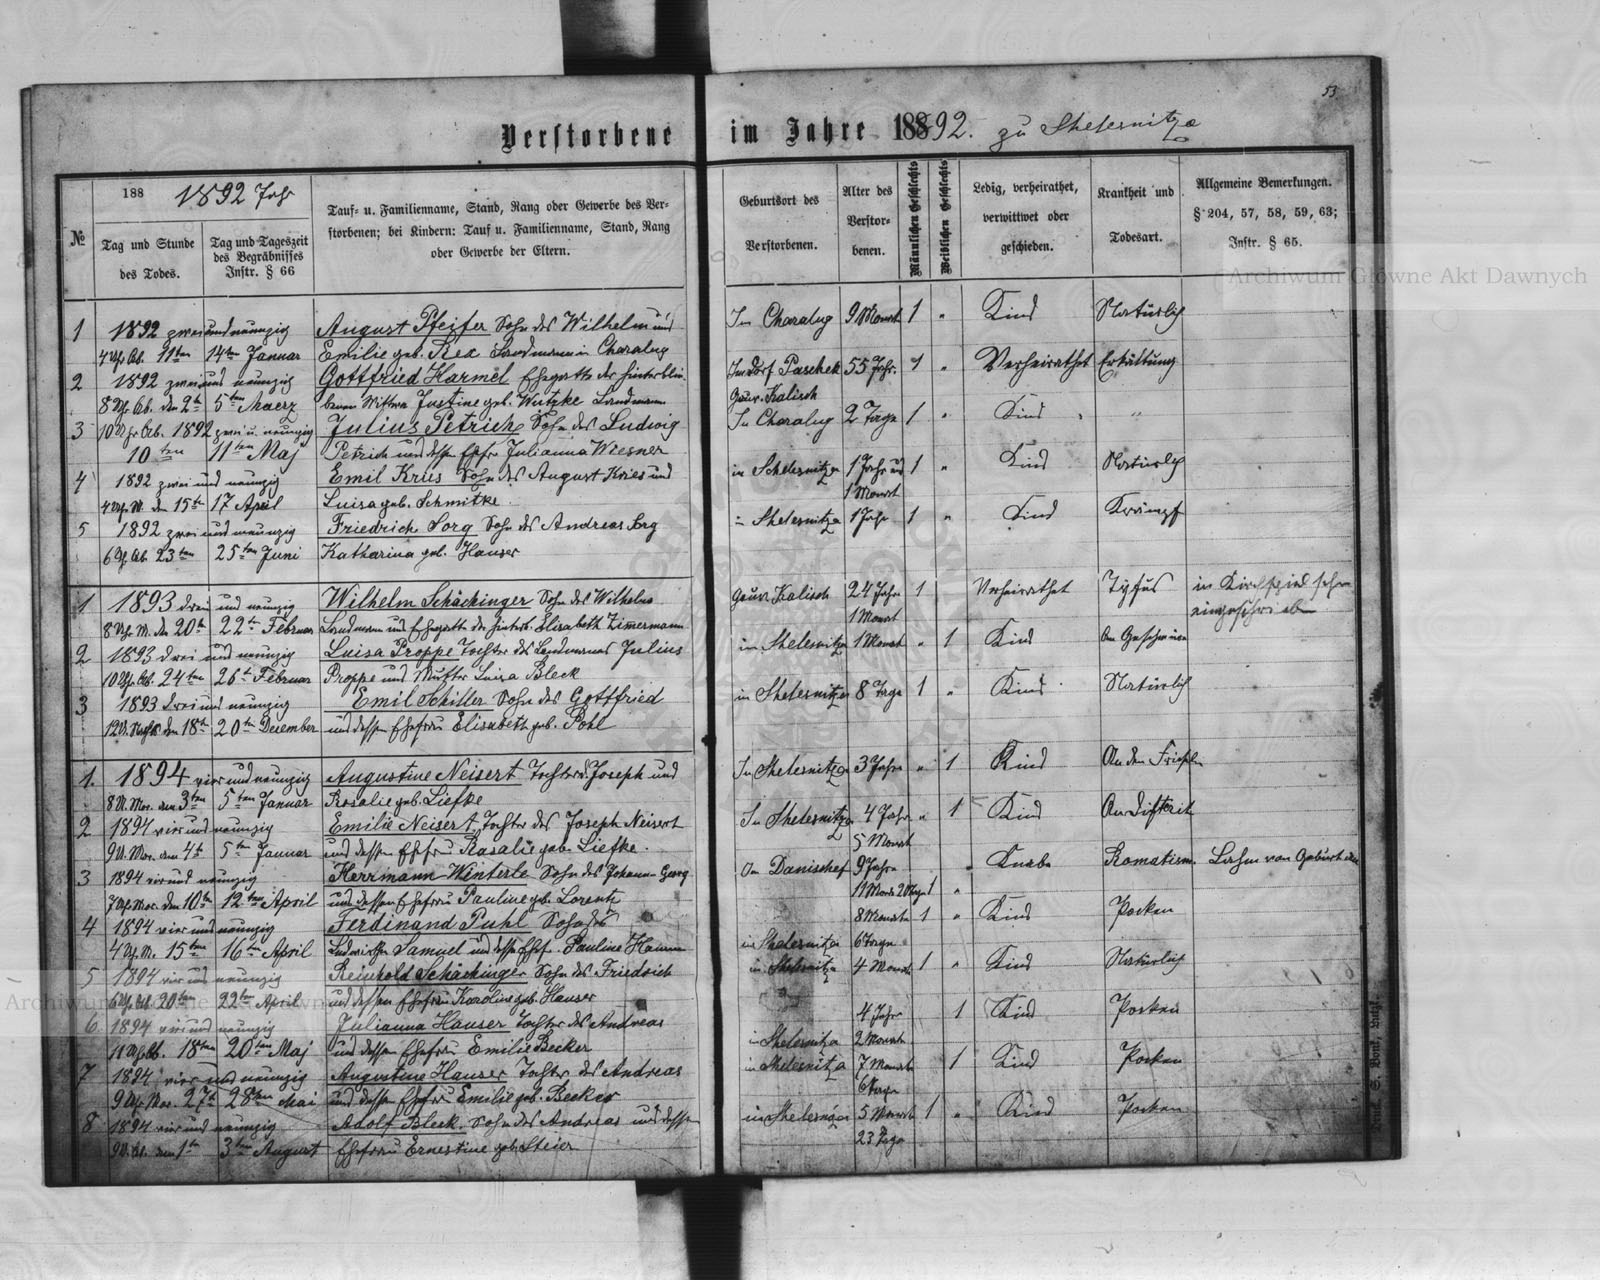 53
Verstorbene im Jahre 18892. zu Shelesnitza
№
188 1892 Jahr
Tag und Stunde des Todes.
Tag und Tageszeit des Begräbnisses Instr. § 66
Tauf- u. Familienname, Stand, Rang oder Gewerbe des Ver-
storbenen; bei Kindern: Tauf u. Familienname, Stand, Rang
oder Gewerbe der Eltern.
Geburtsort des Verstorbenen.
Alter des Verstor-
benen.
Männlichen Geschlechts
Weiblichen Geschlechts
Ledig, verheirathet, verwittwet oder geschieden.
Krankheit und Todesart.
Allgemeine Bemerkungen.
§ 204, 57, 58, 59, 63;
Instr. § 65.
1 1892 zwei und neunzig August Pfeifer Sohn des Wilhelm und In Charalug 9 Monat 1 " Kind Natürlich
4 Uhr Ab. 11ten 14ten Januar Emilie geb. Rex Landmann in Charalug
2 1892 zwei und neunzig Gottfried Harmel Ehegatte der hinterblie- Im Dorf Paschek 55 Jahr. 1 " Verheirathet Erkältung
8 Uh. Ab. den 2ten 5ten Maerz benen Wittwe Justine geb. Wutzke Landmann Gouv. Kalisch
3 10 Uhr Ab. 1892 zwei u. neunzig Julius Petrich Sohn des Ludwig In Charalug 2 Tage 1 " Kind "
10ten 11ten Maj Petrich und dessen Ehefr Julianna Wiesner
4 1892 zwei und neunzig Emil Krus Sohn des August Kries und in Schelesnitza 1 Jahr und 1 " Kind Natürlich
4 Uhr M. den 15ten 17 April Luisa geb. Schmitke 1 Monat
5 1892 zwei und neunzig Friedrich Sorg Sohn des Andreas Sorg in Shelesnitza 1 Jahr 1 " Kind Krämpf
6 U. Ab. 23ten 25ten Juni Katharina geb. Hauser
1 1893 drei und neunzig Wilhelm Schächinger Sohn des Wilhelms Gouv. Kalisch 24 Jahr 1 Verheirathet Tyfus in Kirchspiel schon
8 Uhr M. den 20ten 22ten Februar Landmann und Ehegatte der hinterb. Elisabeth Zimmermann 1 Monat eingeschrieben
2 1893 drei und neunzig Luisa Proppe Tochter des Landmannes Julius in Shelesnitza 1 Monat " 1 Kind
10 Uhr Ab. 24ten 26ten Februar Proppe und Mutter Luisa Bleck
3 1893 drei und neunzig Emil Schiller Sohn des Gottfried in Shelesnitza 8 Tage 1 " Kind Natürlich
12 U. Nachts den 18ten 20ten Desember und dessen Ehefrau Elisabeth geb. Pohl
1. 1894 vier und neunzig Augustine Neisert Tochter d. Joseph und In Shelesnitza 3 Jahre " 1 Kind
8 U. Mor. den 3ten 5ten Januar Rosalie geb. Liefke
2 1894 vier und neunzig Emilie Neisert Tochter des Joseph Neisert In Shelesnitza 4 Jahre " 1 Kind An Difterit
9 U. Mor. den 4ten 5ten Januar und dessen Ehefrau Rosalie geb. Liefke. 5 Monat
3 1894 vier und neunzig Herrmann Winterle Sohn des Johann Georg 9 Jahre Knabe Romatism. Lahm von Geburt an
7 Uhr Mor. den 10ten 12ten April und dessen Ehefrau Pauline geb. Lorentz 11 Mon. 20 Tage 1 "
4 1894 vier und neunzig Ferdinand Puhl Sohn des 8 Monate 1 " Kind Pocken
4 Uh. M. 15ten 16ten April Samuel und dessen Ehef. Pauline in Shelesnitza 6 Tage
5 1894 vier und neunzig Reinhold Schächinger Sohn des Friedrich in Shelesnitza 4 Monat 1 " Kind Natürlich
6 Uhr Ab. 20ten 22ten April und dessen Ehefrau Karoline geb. Hauser
6. 1894 vier und neunzig Julianna Hauser Tochter des Andreas 4 Jahr 1 Kind Pocken
11 Uh. Ab. 18ten 20ten Maj und dessen Ehefrau Emilie Becker in Shelesnitza 2 Monate
7 1894 vier und neunzig Augustine Hauser Tochter des Andreas in Shelesnitza 7 Monate 1 Kind Pocken
9 Uhr Mor. 27ten 28ten Mai und dessen Ehefrau Emilie geb. Becker 6 Tage
8 1894 vier und neunzig Adolf Bleck Sohn des Andreas und dessen in Shelesnitza 5 Monat 1 " Kind Pocken
9 U. Ab. den 1ten 3ten August Ehefrau Ernestine geb. Steier 23 Tage
Archiwum Główne Akt Dawnych
Archiwum Główne Akt Dawnych